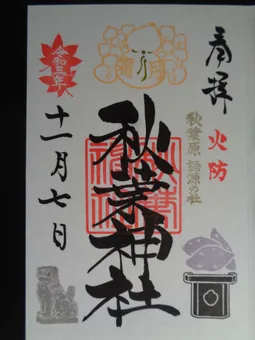 奉拝
火防
秋葉原 語源の社
秋葉神社
令和三年
十一月七日